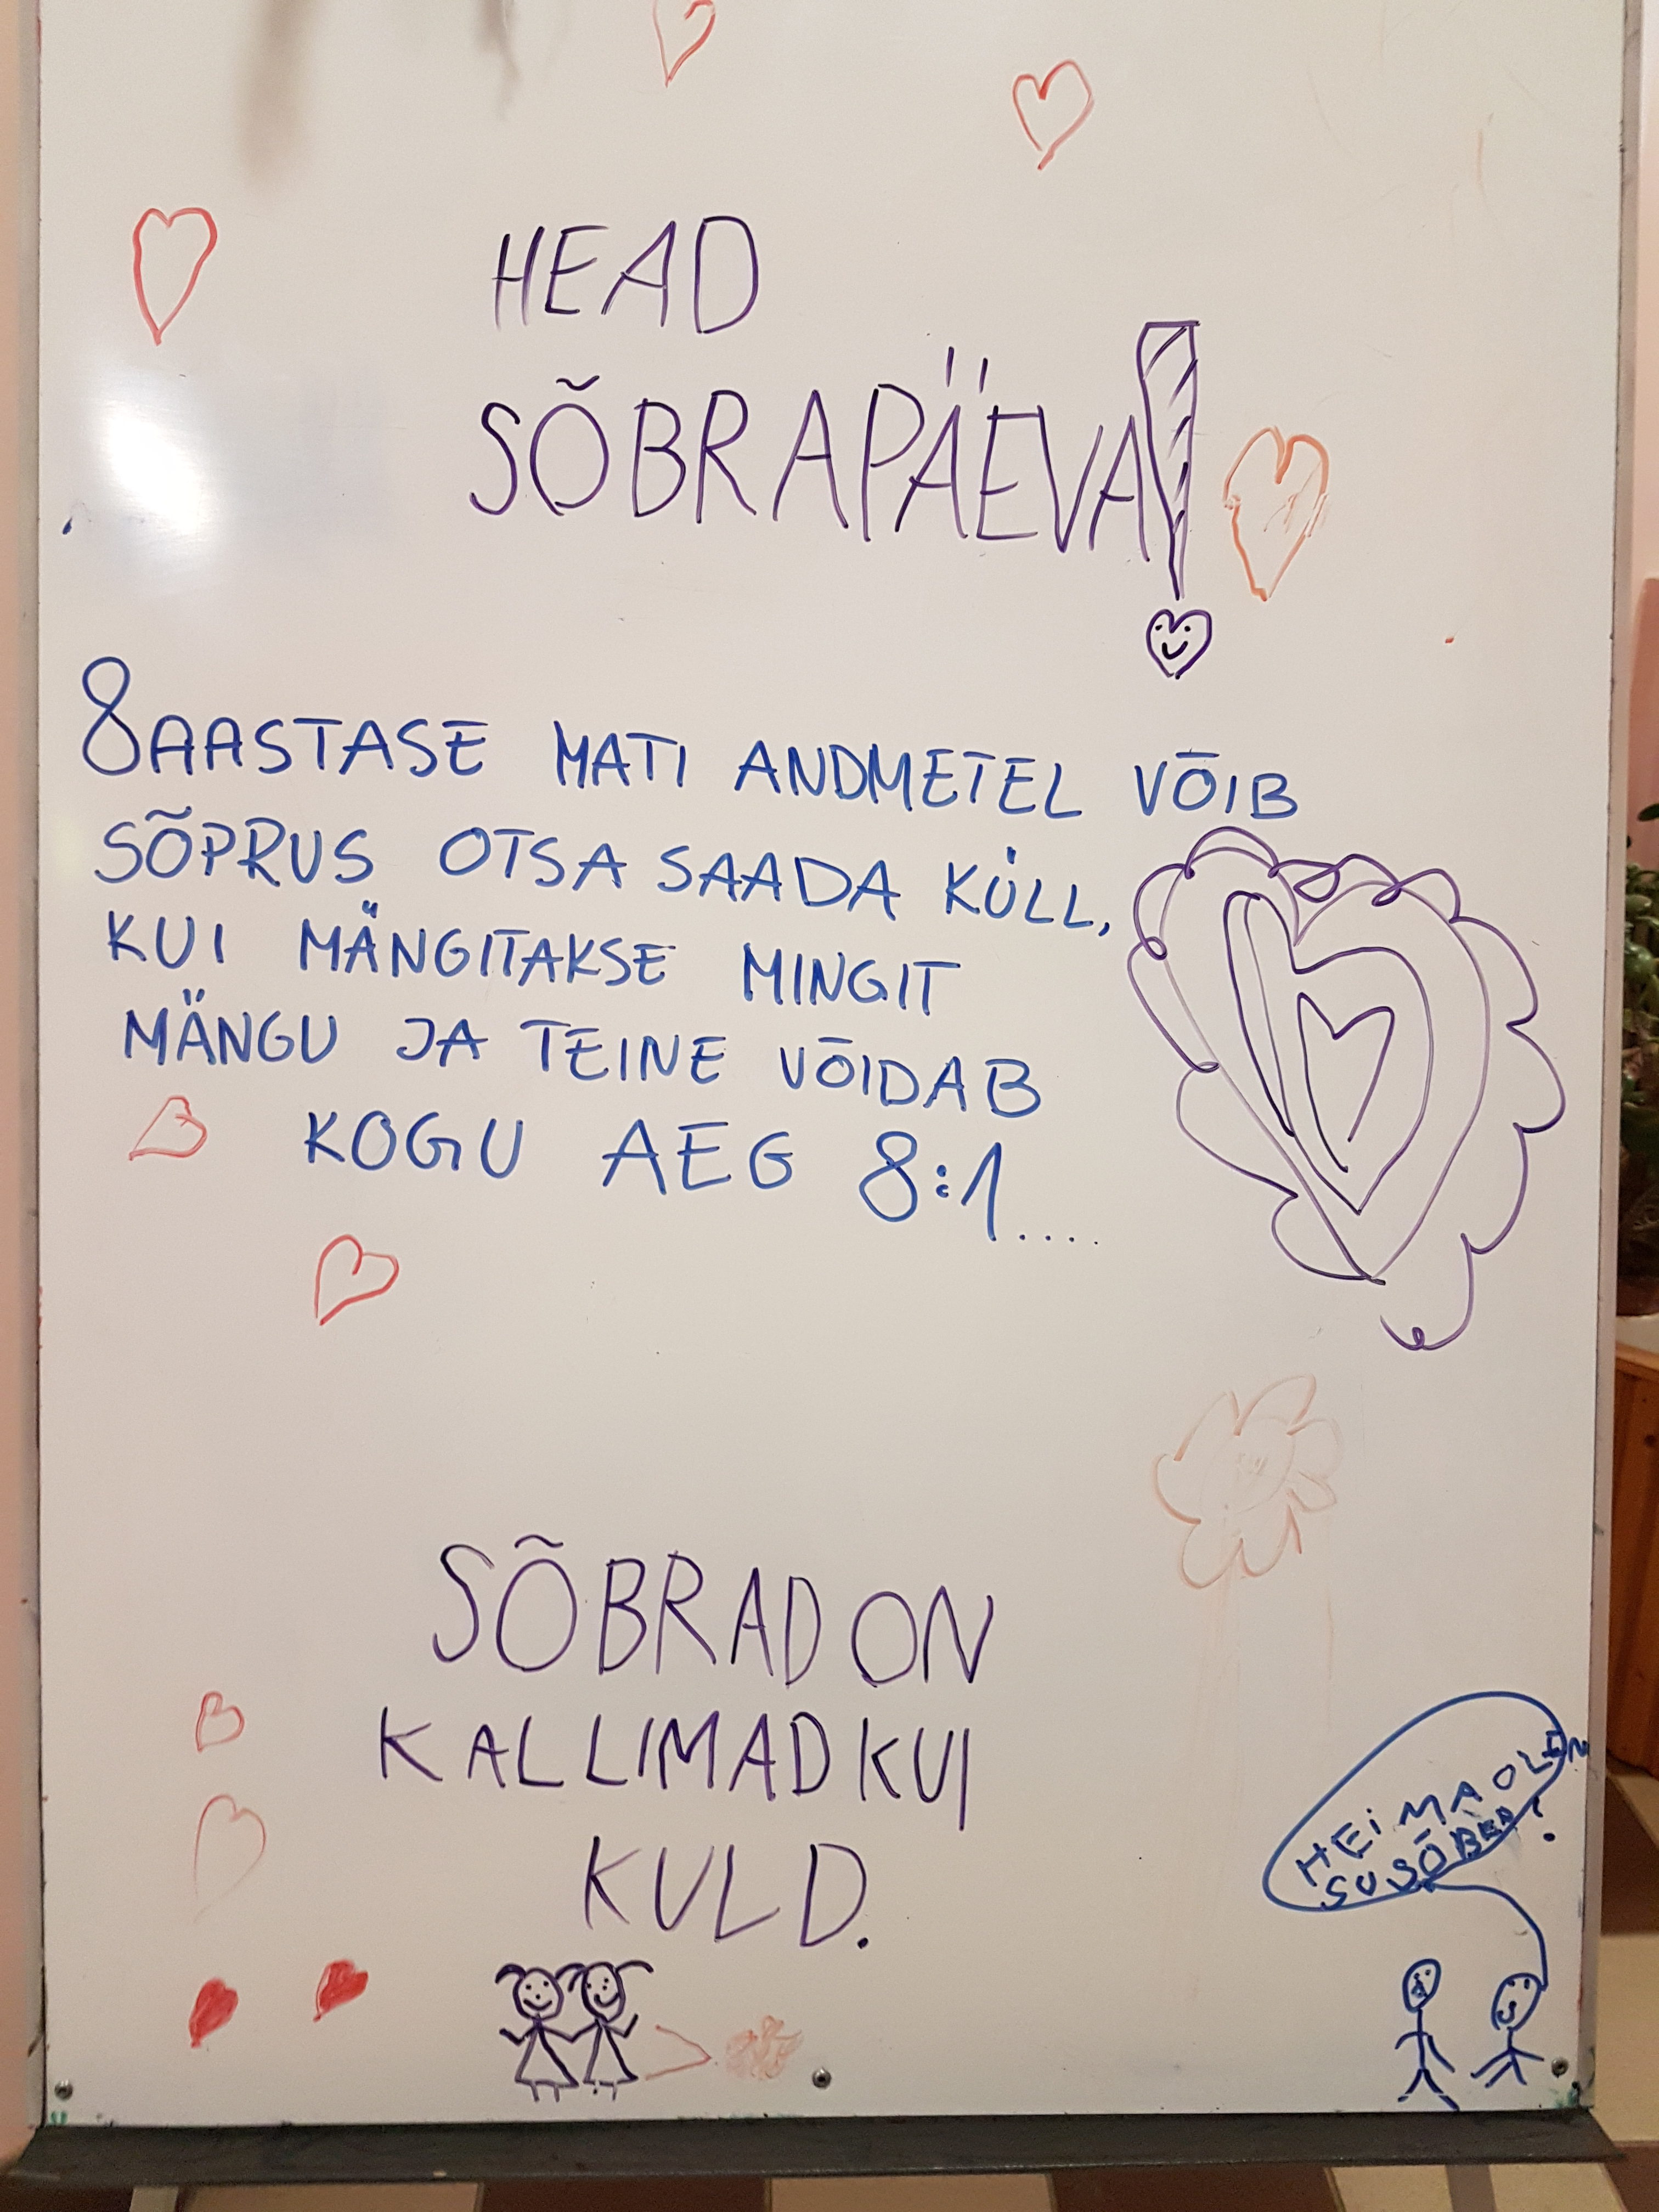 HEAD
SÕBRAPÄEVA!
8AASTASE MATI ANDMETEL VÕIB
SÕPRUS OTSA SAADA KÜLL,
KUI MÄNGITAKSE MINGIT
MÄNGU JA TEINE VÕIDAB
KOGU AEG 8:1....
SÕBRAD ON
KALLIMAD KUI
KULD.
HEi MA OLEN
SU SÕBER!